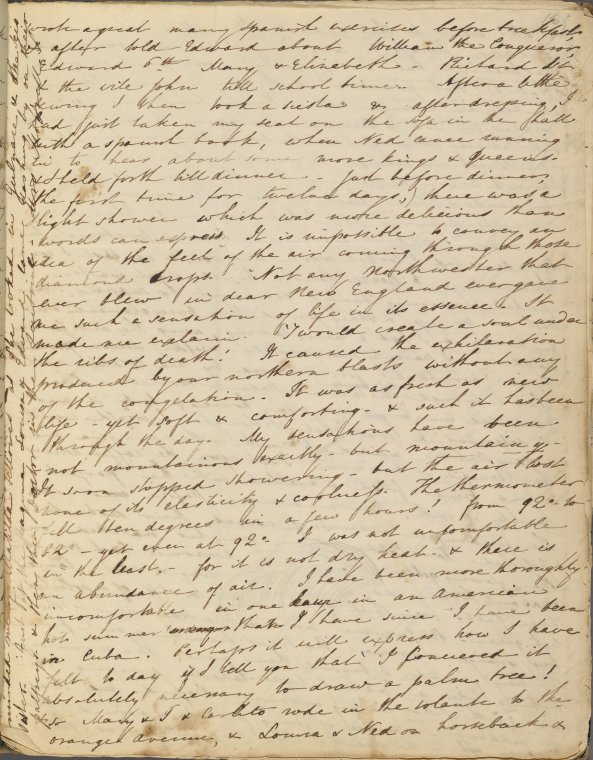 wrote a great many Spanish exercises before breakfast
& after told Edward about William the Conqueror
Edward 6th Mary & Elizabeth - Richard 1st
& the vile John till school time. After a little
sewing I then took a siesta & after dressing, I
had just taken my seat on the sofa in the hall
with a spanish book, when Ned came running
in to hear about some more kings & Queens.
I held forth till dinner - Just before dinner,
(the first time for twelve days,) there was a
light shower which was more delicious than
words can express. It is impossible to convey an
idea of the feel of the air coming through those
diamond drops. Not any Northwester that
ever blew in dear New England ever gave
me such a sensation of life in its essence. It
made me exclaim "I would create a soul under
the ribs of death! It caused the exhilaration
produced by our northern blasts without any
of the congelation. It was as fresh as new
life - yet soft & comforting - & such it has been
through the day. My sensations have been
not mountainous exactly - but mountainy -
It soon stopped showering - but the air lost
none of its elasticity & coolness. The thermometer
fell ten degrees in a few hours! from 92° to
82° - yet even at 92° I was not uncomfortable
in the least, - for it is not dry heat - & there is
an abundance of air. I have been more thoroughly
uncomfortable in one hour in an American
hot summer than I have since I have been
in Cuba. Perhaps it will express how I have
felt to day if I tell you that I conceived it
absolutely necessary to draw a palm tree!
Mary & I & Carlito rode in the volante to the
orange avenue, & Louisa & Ned on horseback &